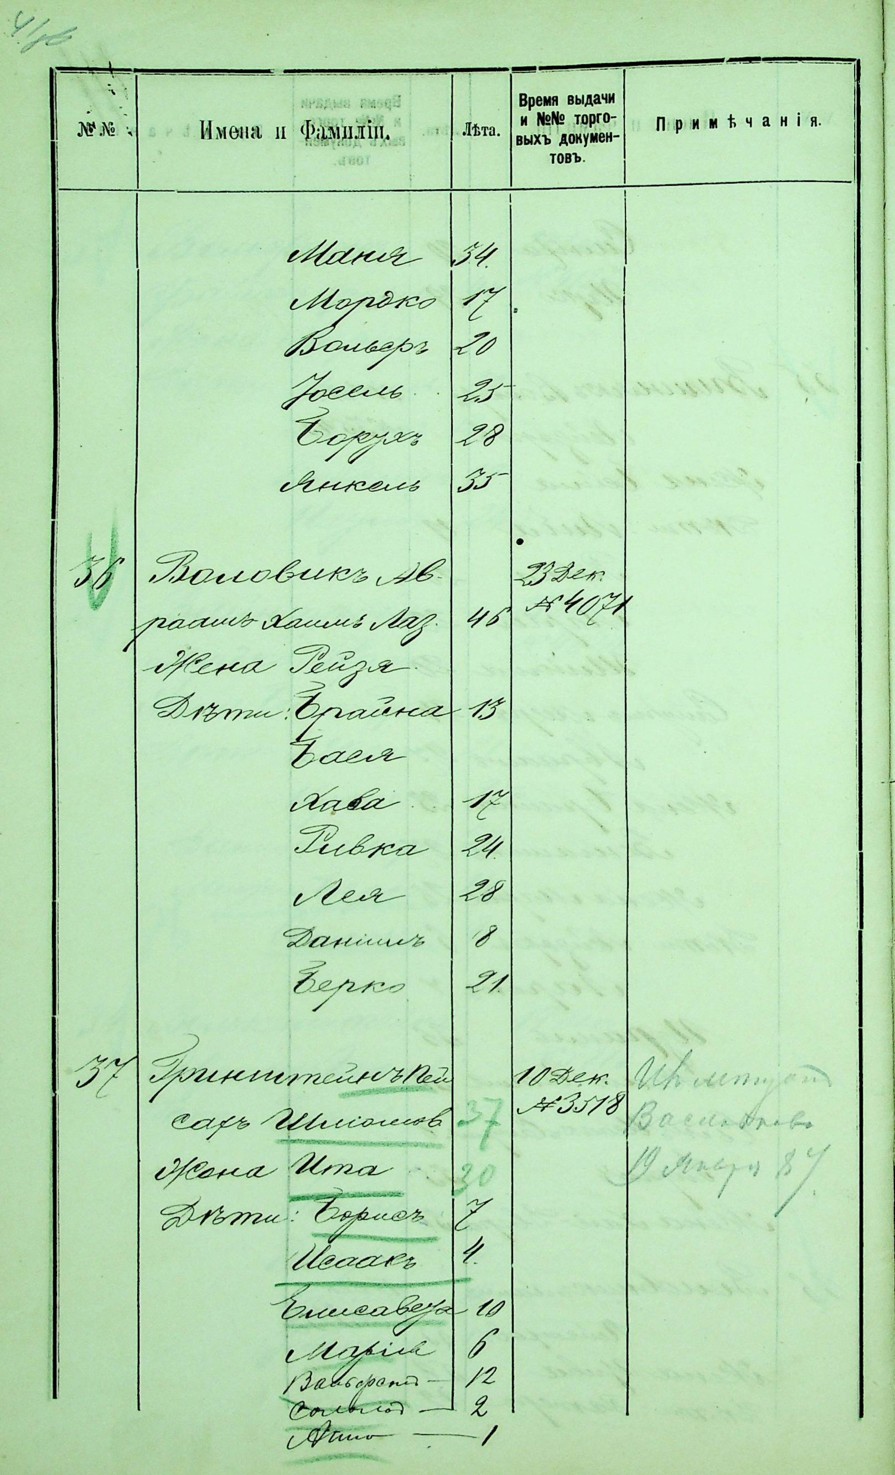 №№ Имена и Фамиліи. Лѣта. Время выдачи и №№ торговыхъ документовъ. Примѣчанія.
Маня 34.
Мордко 17
Вольфъ 20
Іосель 25
Борухъ 28
Янкель 35
36 Воловикъ Ав- 23 Дек.
раамъ Хаимъ Лаз. 46 № 4071
Жена Рейзя
Дѣти: Брайна 13
Бася
Хава 17
Ривка 24.
Лея 28
Даніилъ 8
Берко 21
37 Гринштейнъ Пей 10 Дек.
сахъ Шліомов 37 № 3518
Жена Ита 30 19 Января 87
Дѣти: Борисъ 7
Исаакъ 4.
Елисавета 10
Марія 6
12
2
1